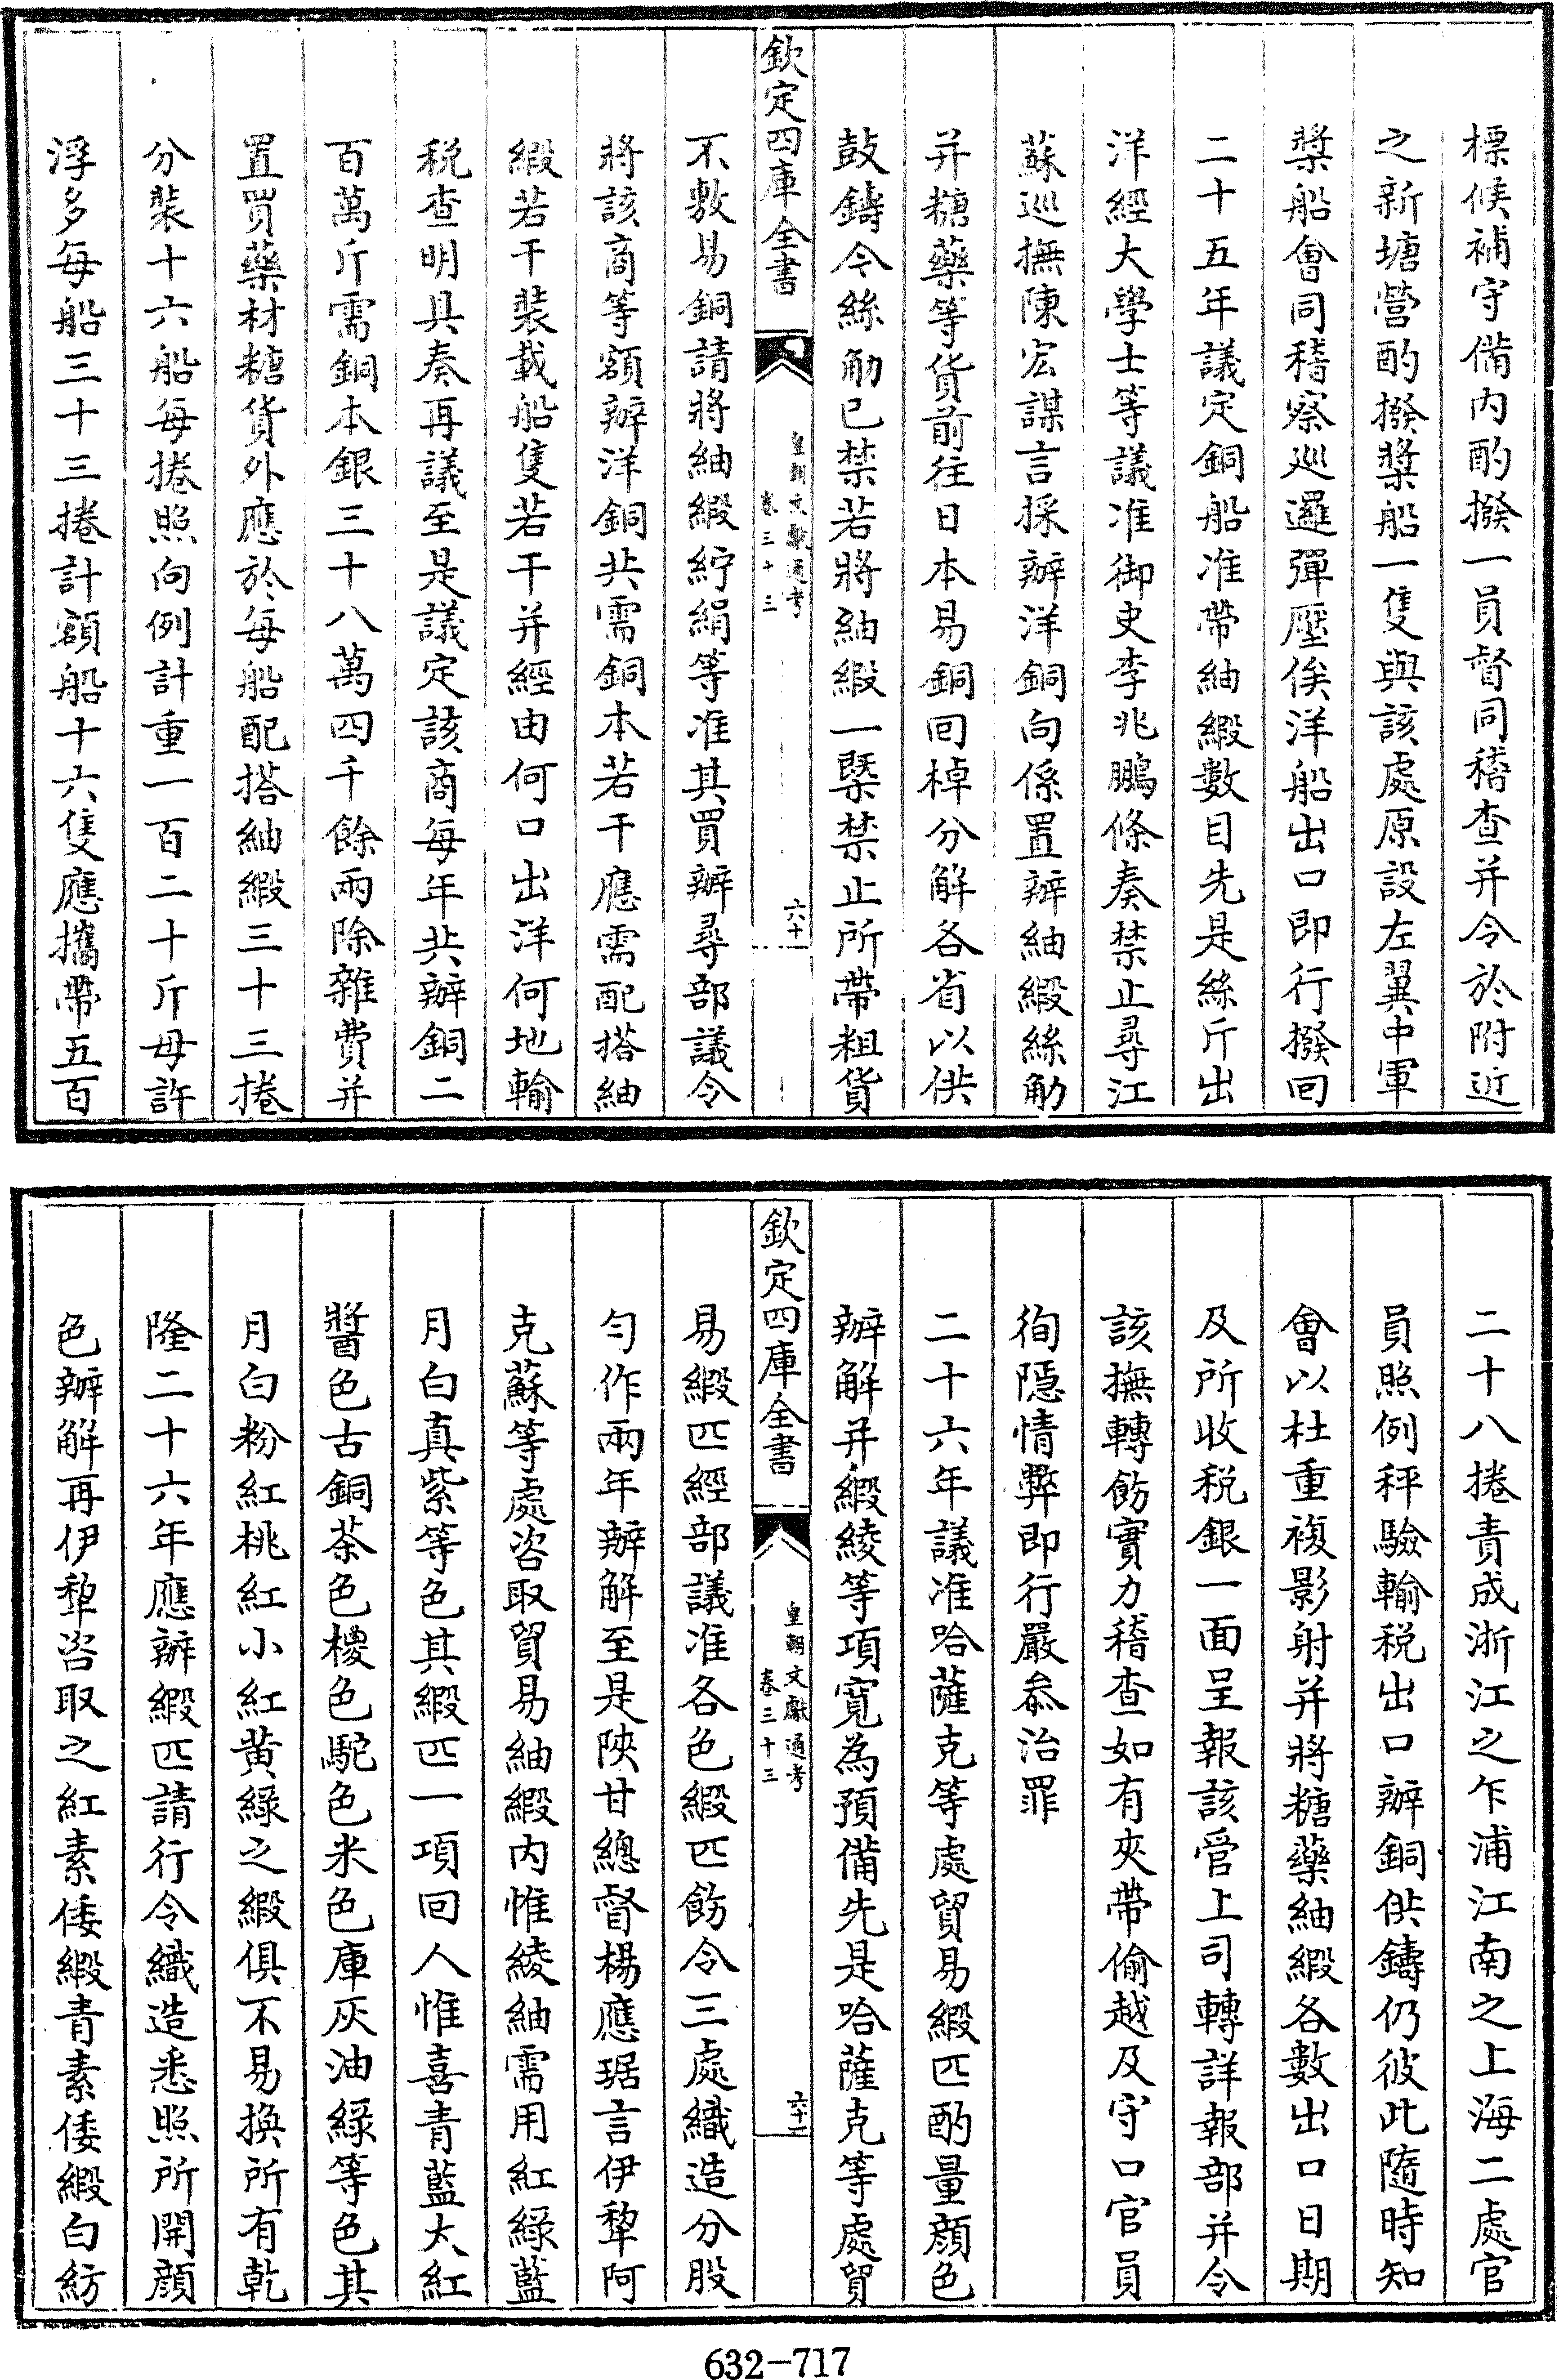 標候補守備内酌撥一員督同稽查并令於附近
之新塘營酌撥槳船一隻與該處原設左翼中軍
槳船會同稽察廵邏彈壓俟洋船出口即行撥回
二十五年議定銅船准帶紬緞數目先是絲斤出
洋經大學士等議准御史李兆鵬條奏禁止尋江
蘇巡撫陳宏謀言採辦洋銅向係置辦紬緞絲觔
并糖藥等貨前往日本易銅回棹分解各省以供
鼓鑄今絲觔已禁若將紬緞一槩禁止所帶粗貨
欽定四庫全書
皇朝文獻通考
卷三十三
六十
不敷易銅請將紬緞紵絹等准其買辦尋部議令
將該商等額辦洋銅共需銅本若干應需配搭紬
緞若干裝載船隻若干并經由何口出洋何地輸
稅查明具奏再議至是議定該商每年共辦銅二
百萬斤需銅本銀三十八萬四千餘兩除雜費并
置買藥材糖貨外應於每船配搭紬緞三十三捲
分裝十六船每捲照向例計重一百二十斤毋許
浮多每船三十三捲計額船十六隻應攜帶五百
二十八捲責成浙江之乍浦江南之上海二處官
員照例秤驗輸税出口辦銅供鑄仍彼此隨時知
會以杜重複影射并將糖藥紬緞各數出口日期
及所收税銀一面呈報該管上司轉詳報部并令
該撫轉飭實力稽查如有夾帶偷越及守口官員
徇隱情弊即行嚴叅治罪
二十六年議准哈薩克等處貿易緞匹酌量顔色
辦解并緞綾等項寛為預備先是哈薩克等處貿
欽定四庫全書
皇朝文獻通考
卷三十三
六十一
易緞匹經部議准各色緞匹飭令三處織造分股
勻作兩年辦解至是陝甘總督楊應琚言伊犂阿
克蘇等處咨取貿易紬緞内惟綾紬需用紅綠藍
月白真紫等色其緞匹一項回人惟喜青藍大紅
醬色古銅茶色椶色駝色米色庫灰油綠等色其
月白粉紅桃紅小紅黄綠之緞俱不易換所有乾
隆二十六年應辦緞匹請行令織造悉照所開顔
色辦解再伊犂咨取之紅素倭緞青素倭緞白紡
632-717